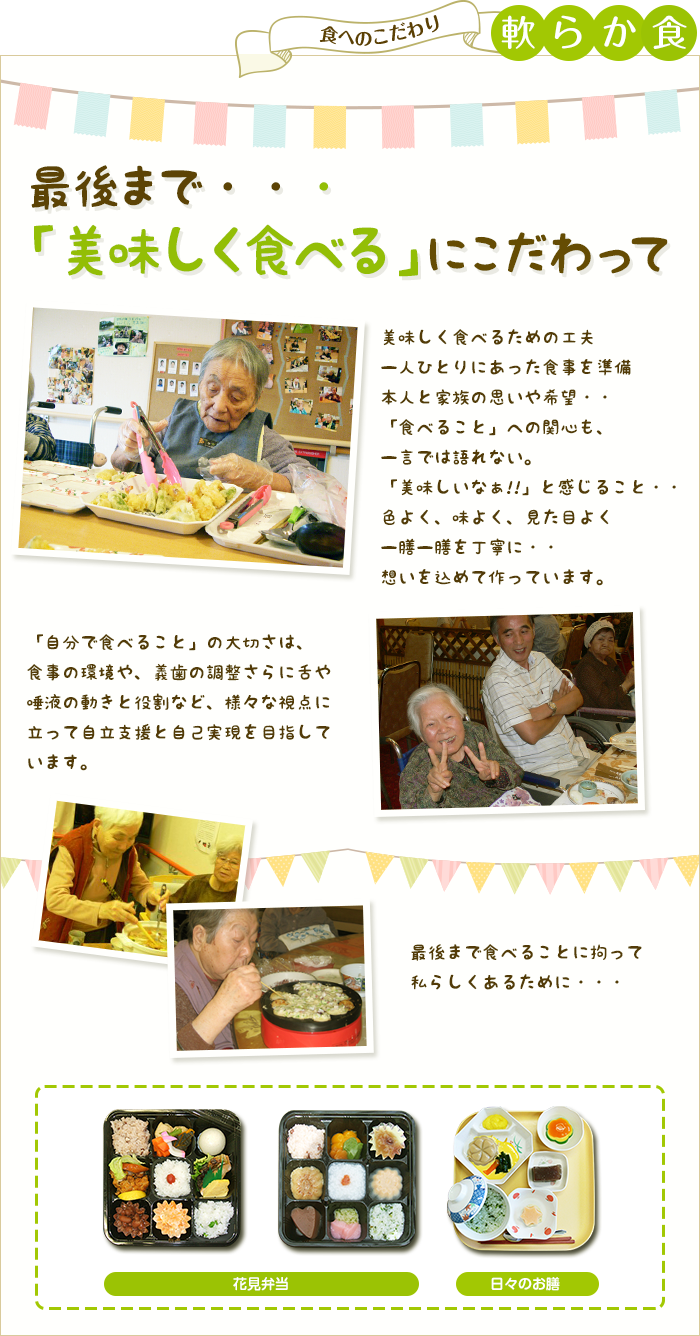 食へのこだわり
軟らか食
最後まで・・・
「美味しく食べる」にこだわって
美味しく食べるための工夫
一人ひとりにあった食事を準備
本人と家族の思いや希望・・
「食べること」への関心も、
一言では語れない。
「美味しいなぁ!!」と感じること・・
色よく、味よく、見た目よく
一膳一膳を丁寧に・・
想いを込めて作っています。
「自分で食べること」の大切さは、
食事の環境や、義歯の調整さらに舌や
唾液の動きと役割など、様々な視点に
立って自立支援と自己実現を目指して
います。
最後まで食べることに拘って
私らしくあるために・・・
花見弁当
日々のお膳